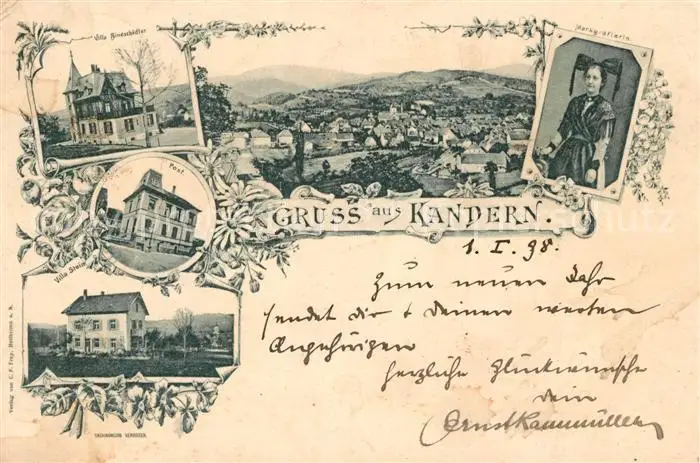 Villa Hindschädler
Markgräflerin
Post
GRUSS aus KANDERN.
Villa Stein
1. I. 98.
Zum neuen Jahr
sendet dir & deinen werten
Angehörigen
herzliche Glückwünsche
dein
Ernst Kammüller
Verlag von C. F. Fray, a. N.
NACHAHMUNG VERBOTEN.